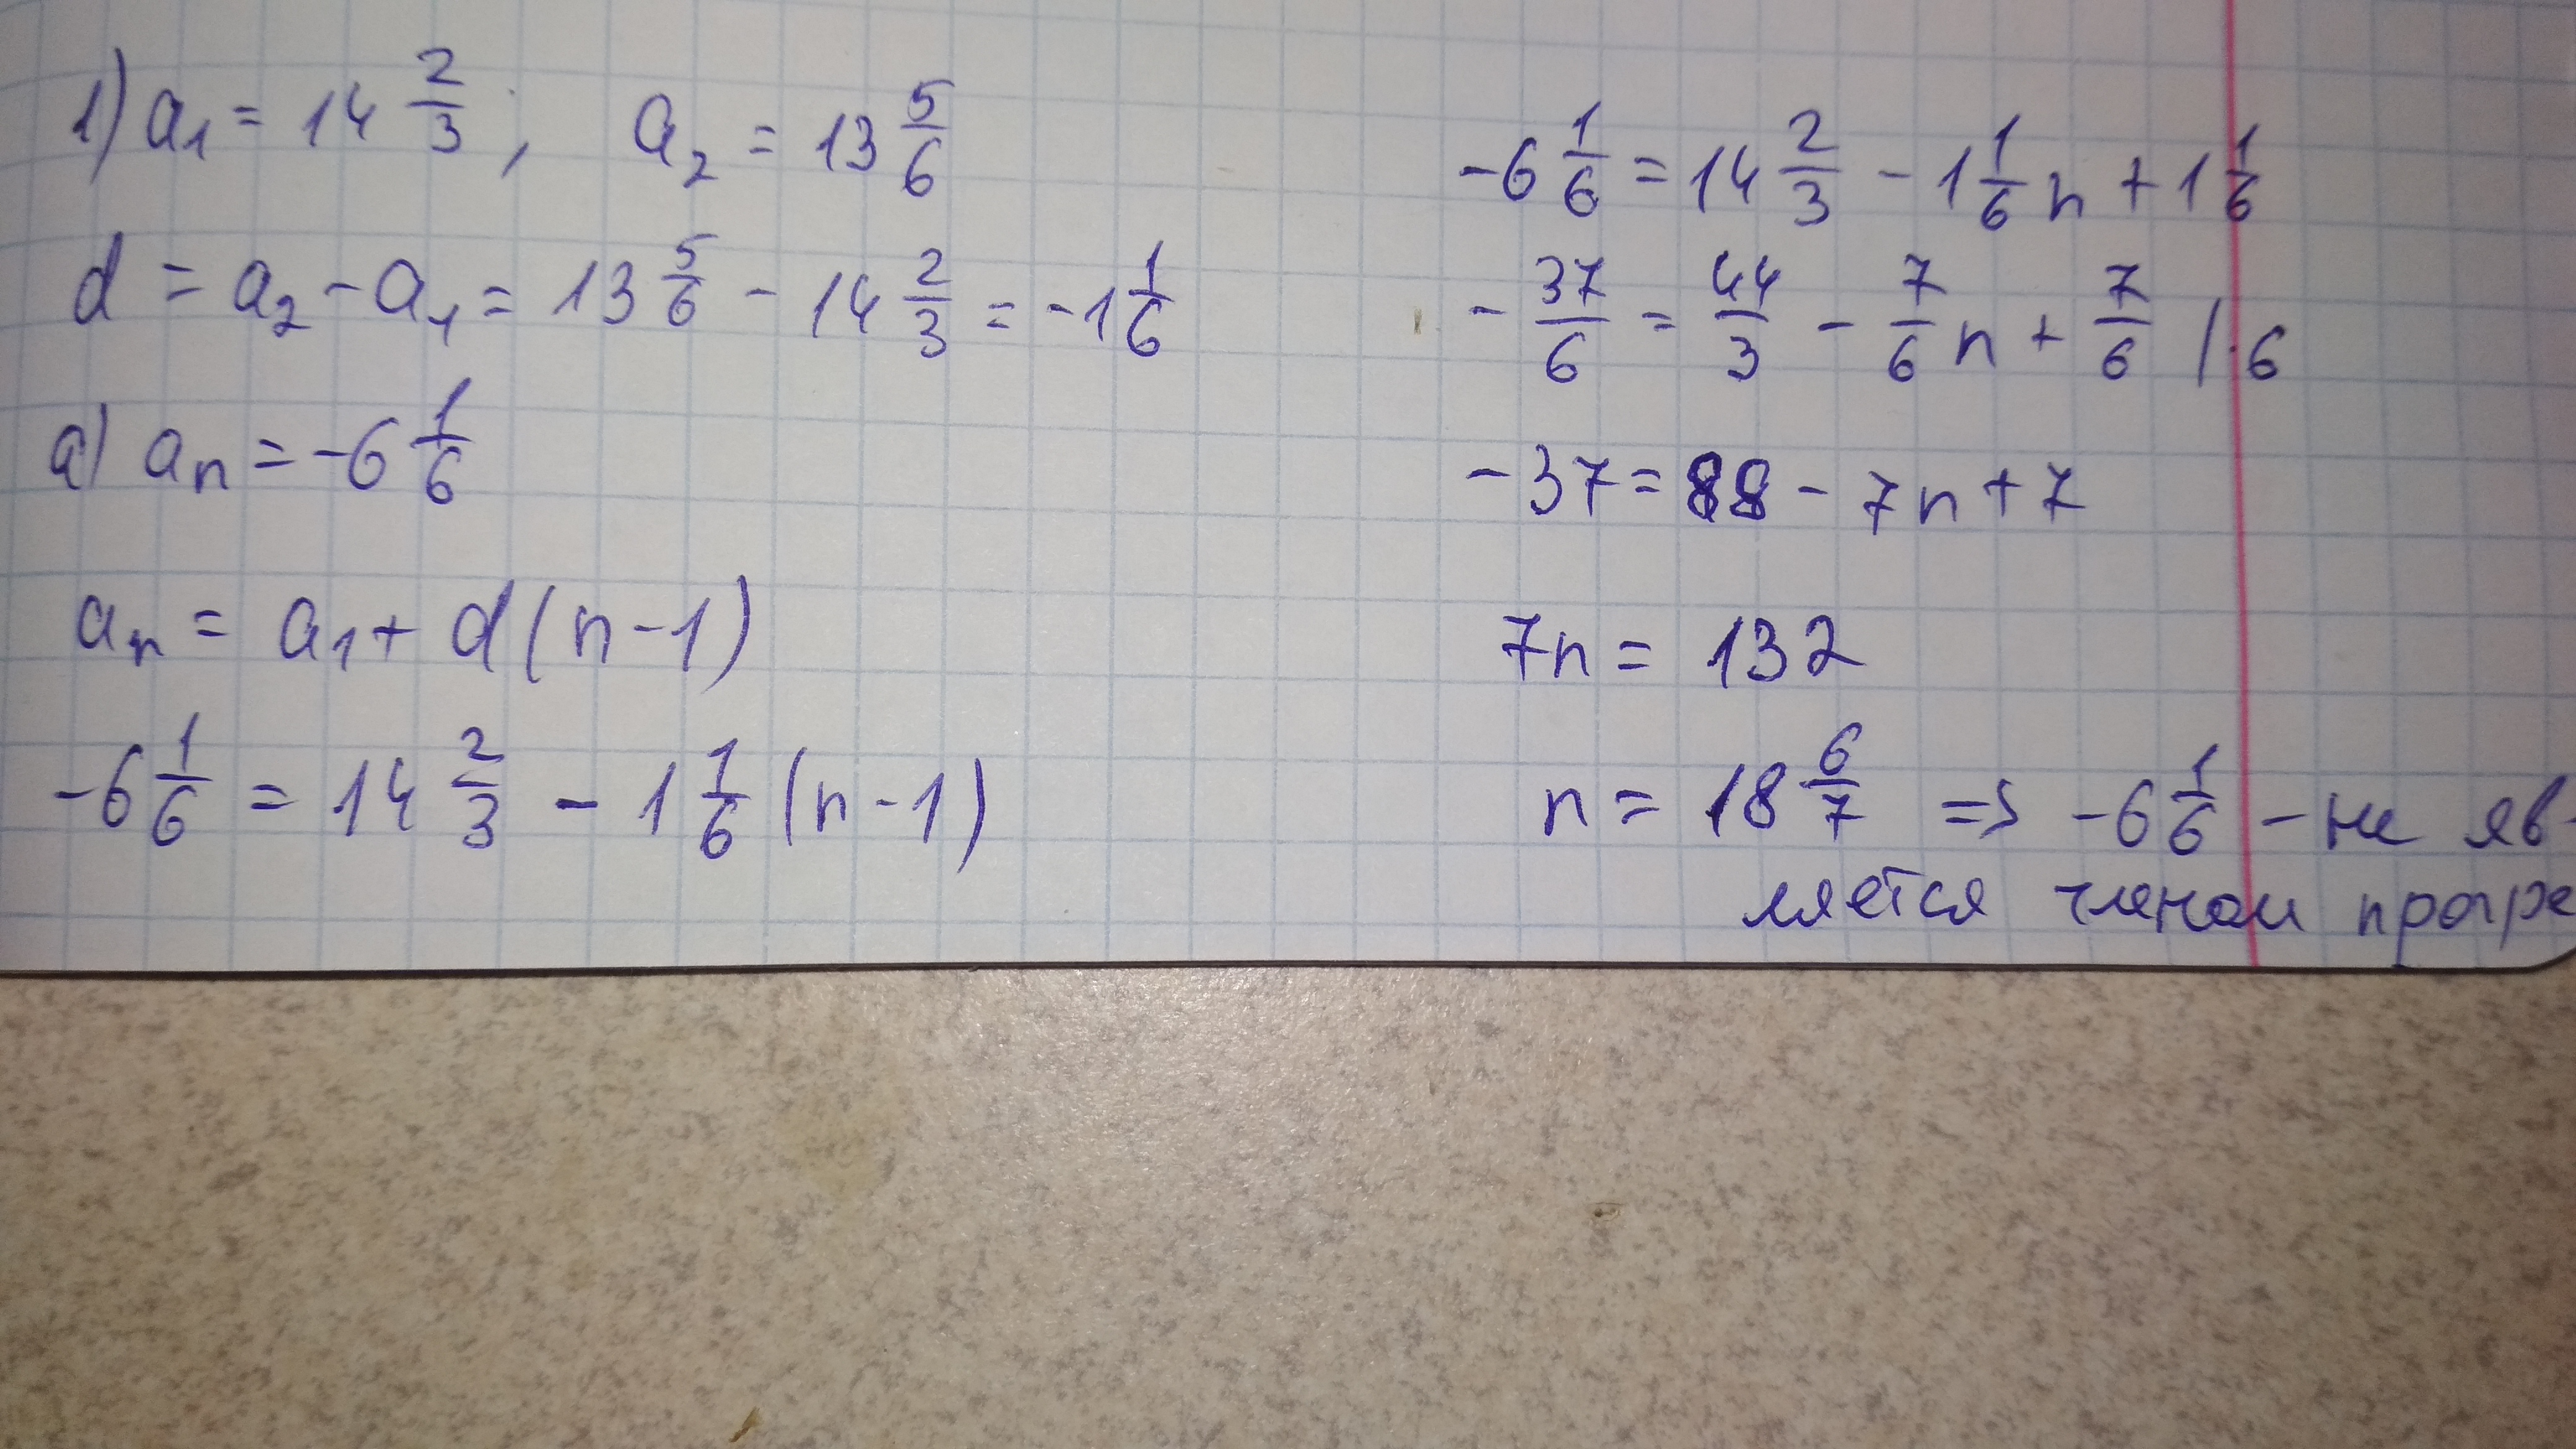 1) a₁ = 14 2/3 ; a₂ = 13 5/6
d = a₂ - a₁ = 13 5/6 - 14 2/3 = -1 1/6
а) aₙ = -6 1/6
aₙ = a₁ + d(n-1)
-6 1/6 = 14 2/3 - 1 1/6 (n-1)
-6 1/6 = 14 2/3 - 1 1/6 n + 1 1/6
- 37/6 = 44/3 - 7/6 n + 7/6 | · 6
-37 = 88 - 7n + 7
7n = 132
n = 18 6/7 => -6 1/6 - не яв-
ляется членом прогре